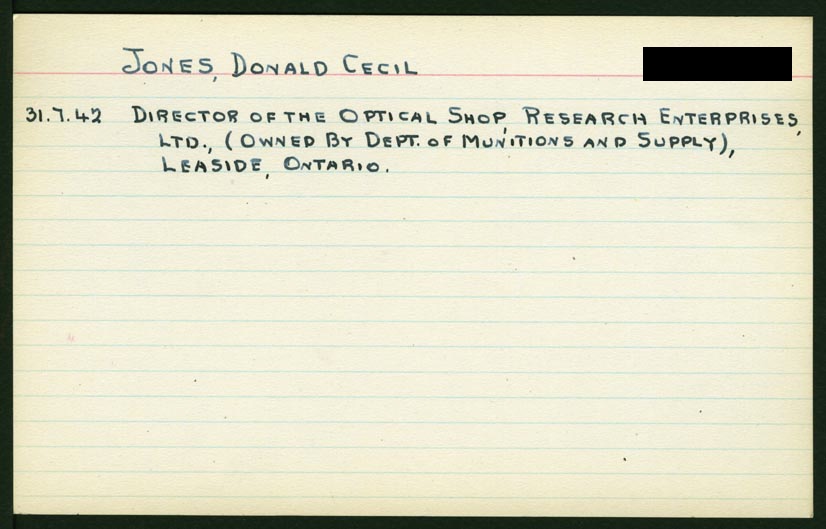 JONES, DONALD CECIL
31.7.42 DIRECTOR OF THE OPTICAL SHOP, RESEARCH ENTERPRISES,
LTD., (OWNED BY DEPT. OF MUNITIONS AND SUPPLY),
LEASIDE, ONTARIO.